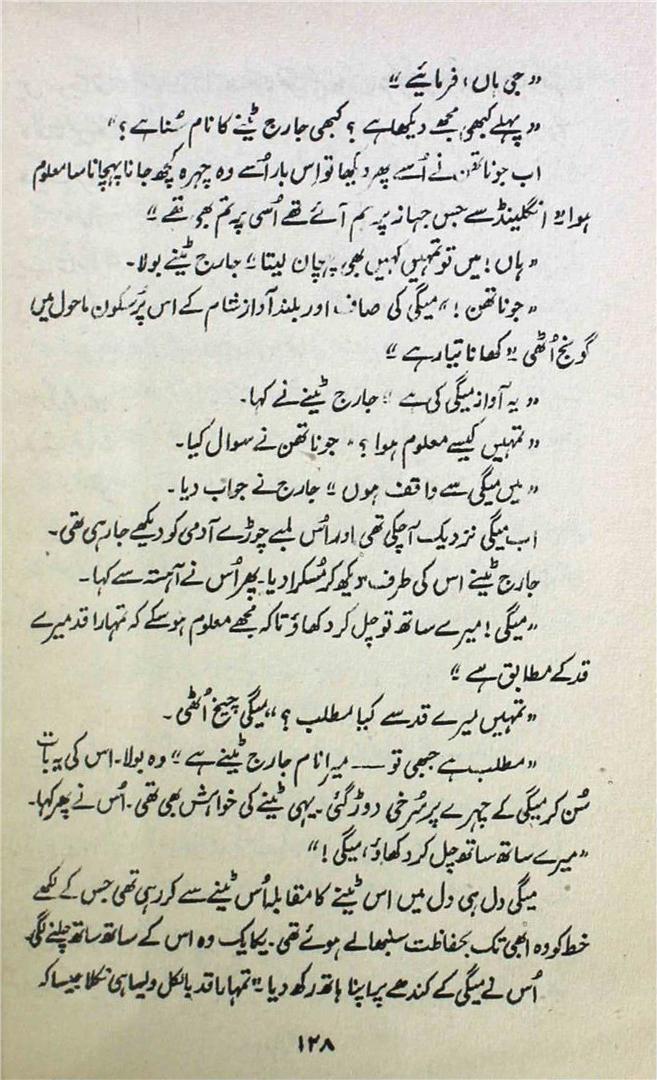 ”جی ہاں، فرمائیے“
”پہلے کبھی مجھے دیکھا ہے؟ کبھی جارج ٹینے کا نام سُنا ہے؟“
اب جوناتھن نے اُسے پھر دیکھا تو اِس بار اُسے وہ چہرہ کچھ جانا پہچانا سا معلوم
ہوا“ انگلینڈ سے جس جہاز پر ہم آئے تھے اُسی پر تم بھی تھے“
”ہاں! میں تو تمہیں کہیں بھی پہچان لیتا“ جارج ٹینے بولا۔
”جوناتھن!“ میگی کی صاف اور بلند آواز شام کے اس پُرسکون ماحول میں
گونج اُٹھی ”کھانا تیار ہے“
”یہ آواز میگی کی ہے“ جارج ٹینے نے کہا۔
”تمہیں کیسے معلوم ہوا؟“ جوناتھن نے سوال کیا۔
”میں میگی سے واقف ہوں“ جارج نے جواب دیا۔
اب میگی نزدیک آچکی تھی اور اُس لمبے چوڑے آدمی کو دیکھے جارہی تھی۔
جارج ٹینے اس کی طرف دیکھ کر مُسکرا دیا۔ پھر اُس نے آہستہ سے کہا۔
”میگی! میرے ساتھ تو چل کر دکھاؤ تاکہ مجھے معلوم ہوسکے کہ تمہارا قد میرے
قد کے مطابق ہے“
”تمہیں میرے قد سے کیا مطلب؟“ میگی چیخ اُٹھی۔
”مطلب ہے جبھی تو — میرا نام جارج ٹینے ہے“ وہ بولا۔ اس کی یہ بات
سُن کر میگی کے چہرے پر سُرخی دوڑ گئی۔ یہی ٹینے کی خواہش بھی تھی۔ اُس نے پھر کہا۔
”میرے ساتھ ساتھ چل کر دکھاؤ، میگی!“
میگی دل ہی دل میں اس ٹینے کا مقابلہ اُس ٹینے سے کر رہی تھی جس کے لکھے
خط کو وہ ابھی تک بحفاظت سنبھالے ہوئے تھی۔ یکایک وہ اس کے ساتھ ساتھ چلنے لگی۔
اُس نے میگی کے کندھے پر اپنا ہاتھ رکھ دیا۔ ”تمہارا قد بالکل ویسا ہی نکلا جیسا کہ
۱۲۸